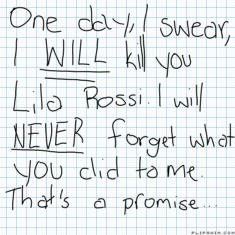 One day, I swear,
I WILL kill you
Lila Rossi. I will
NEVER forget what
you did to me.
That's a promise...
FLIPANIM.COM